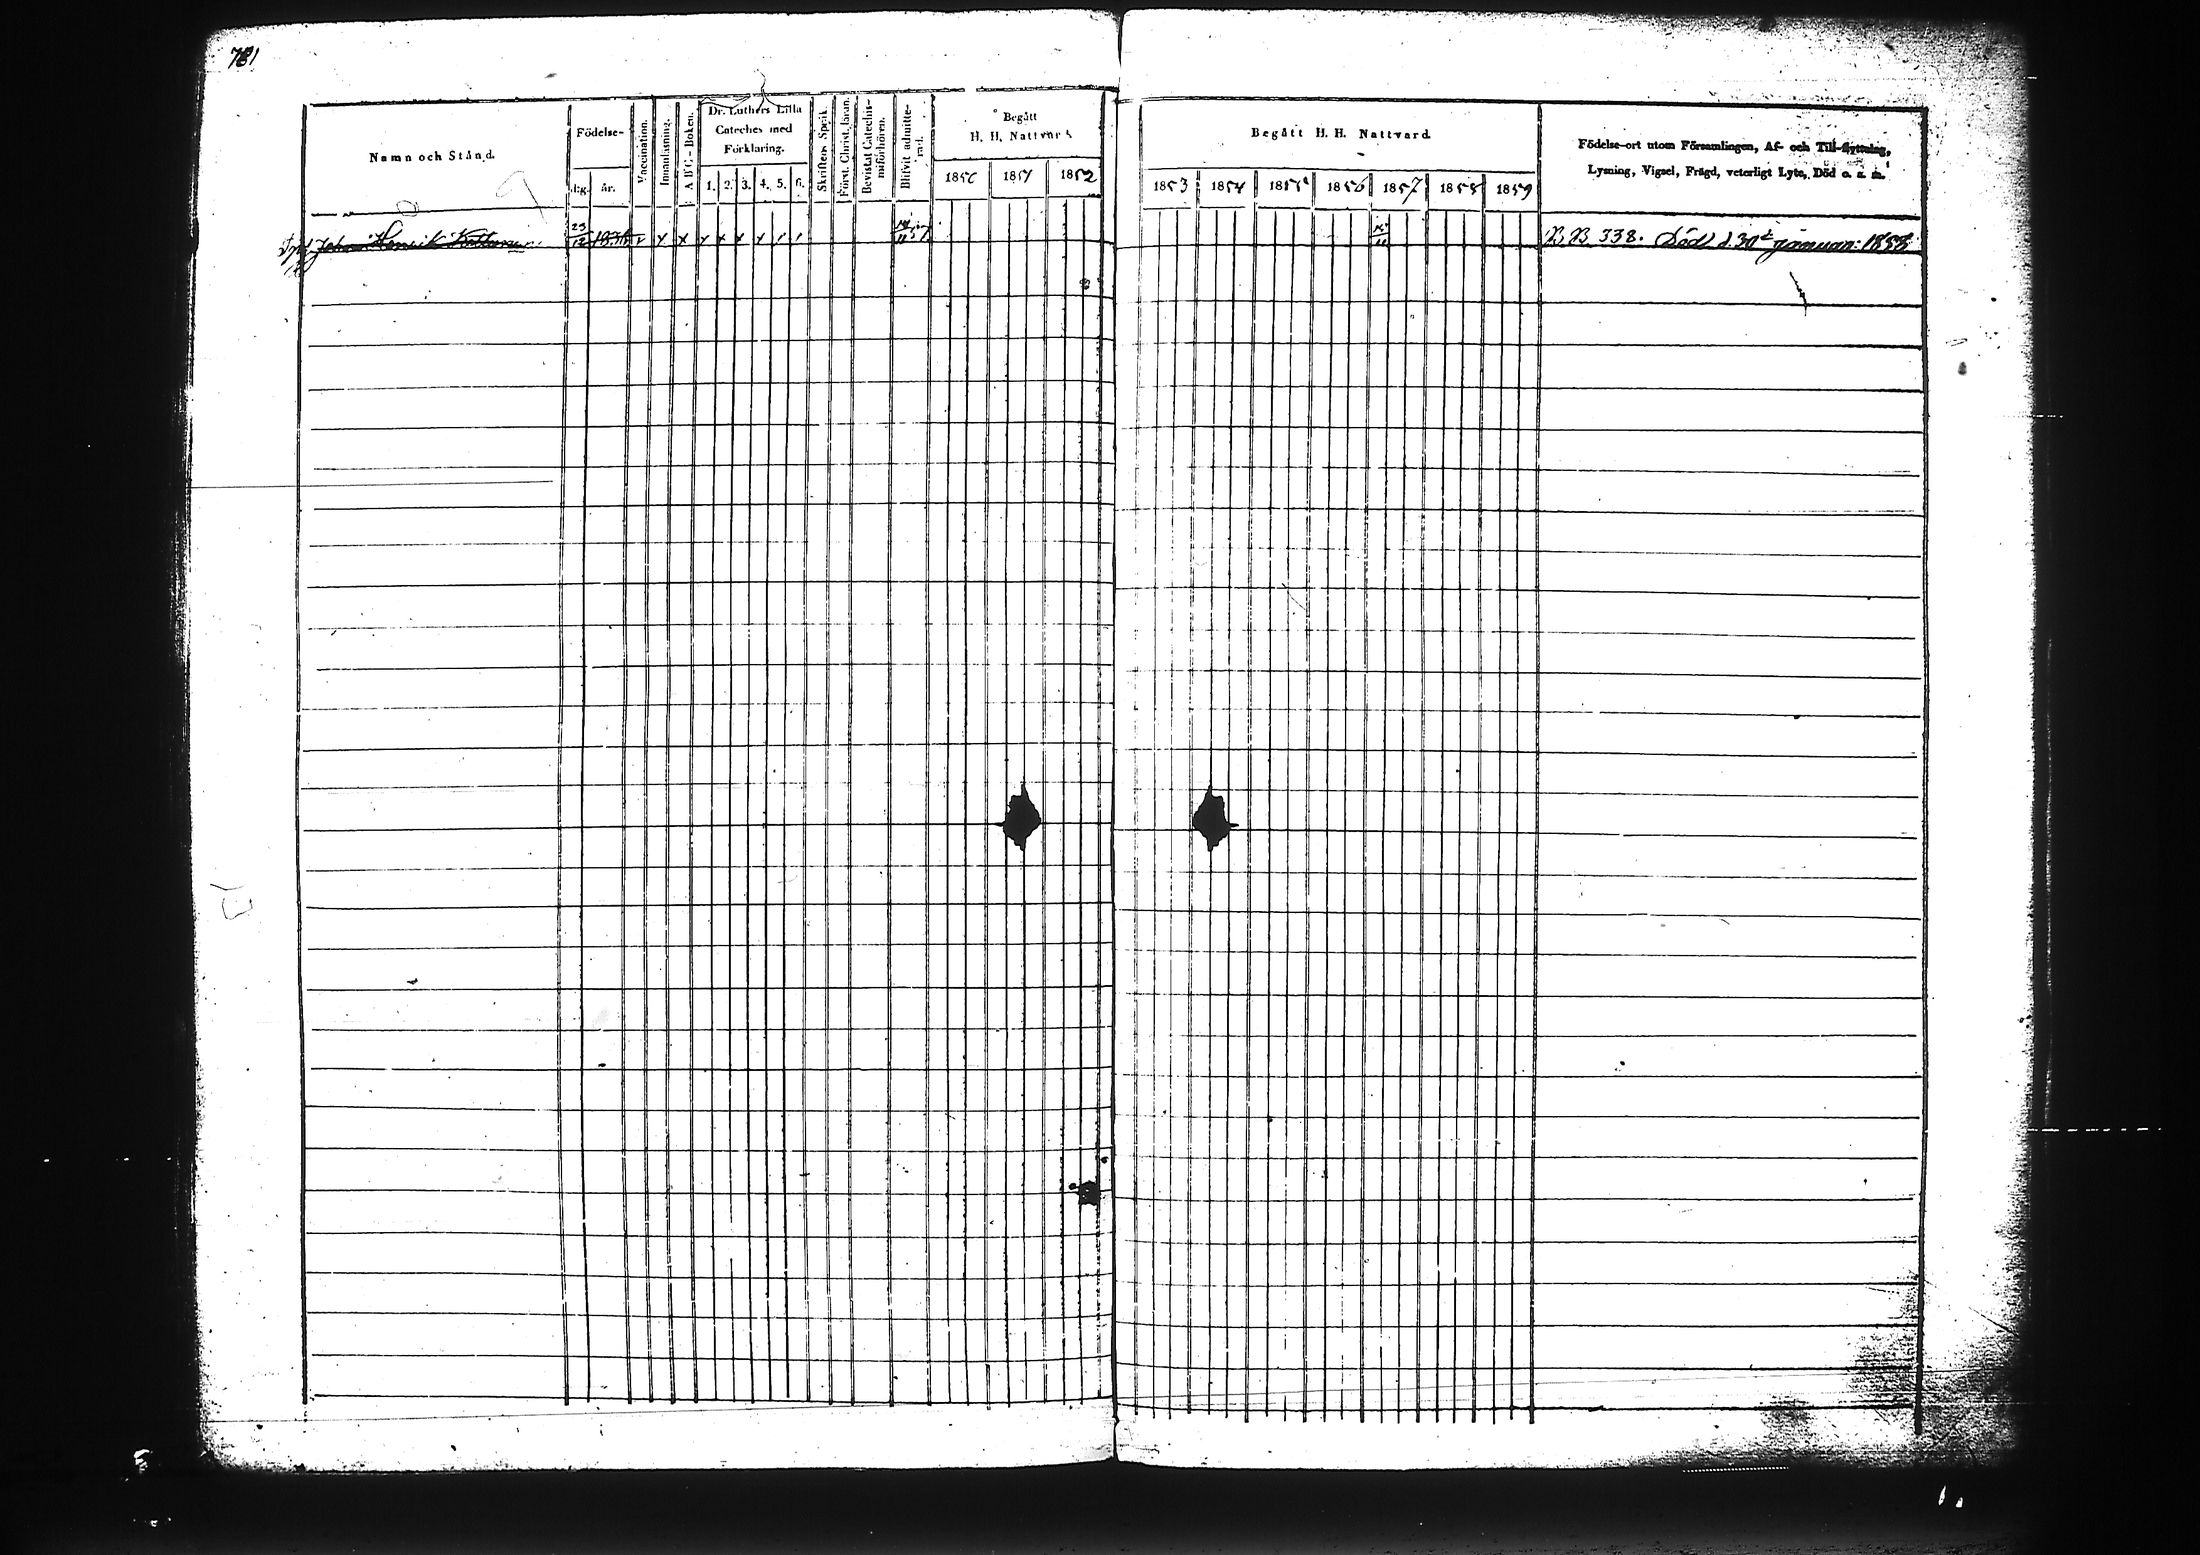 781
Namn och Stånd.
Födelse-
dag. år.
Vaccination.
Innanläsning.
A B C - Boken.
Dr. Luthers Lilla
Cateches med
Förklaring.
1. 2. 3. 4. 5. 6.
Skriftens Språk.
Bevistat Catechis-
miförhören.
Blifvit admitte-
rad.
Begått
H. H. Nattvard
1850 1851 1852
Begått H. H. Nattvard.
1853 1854 1855 1856 1857 1858 1859
Födelse-ort utom Församlingen, Af- och Till-flyttning,
Lysning, Vigsel, Frägd, veterligt Lyte, Död o. s. m.
Johan Henrik 23/12 x x x x x x B. B. 338. Död d. 30 januari